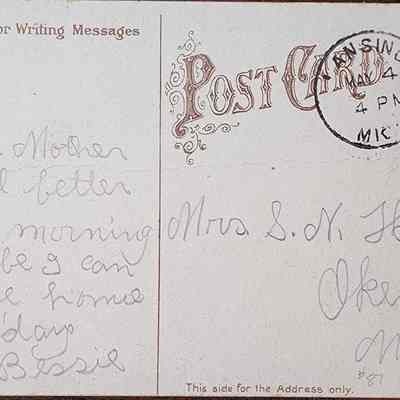 or Writing Messages
Mother
better
morning
be I can
home
day
Bessie
POST CARD
LANSING
MAY 4
4 PM
MIC
Mrs. S. N. H
Oke
M
#81
This side for the Address only.